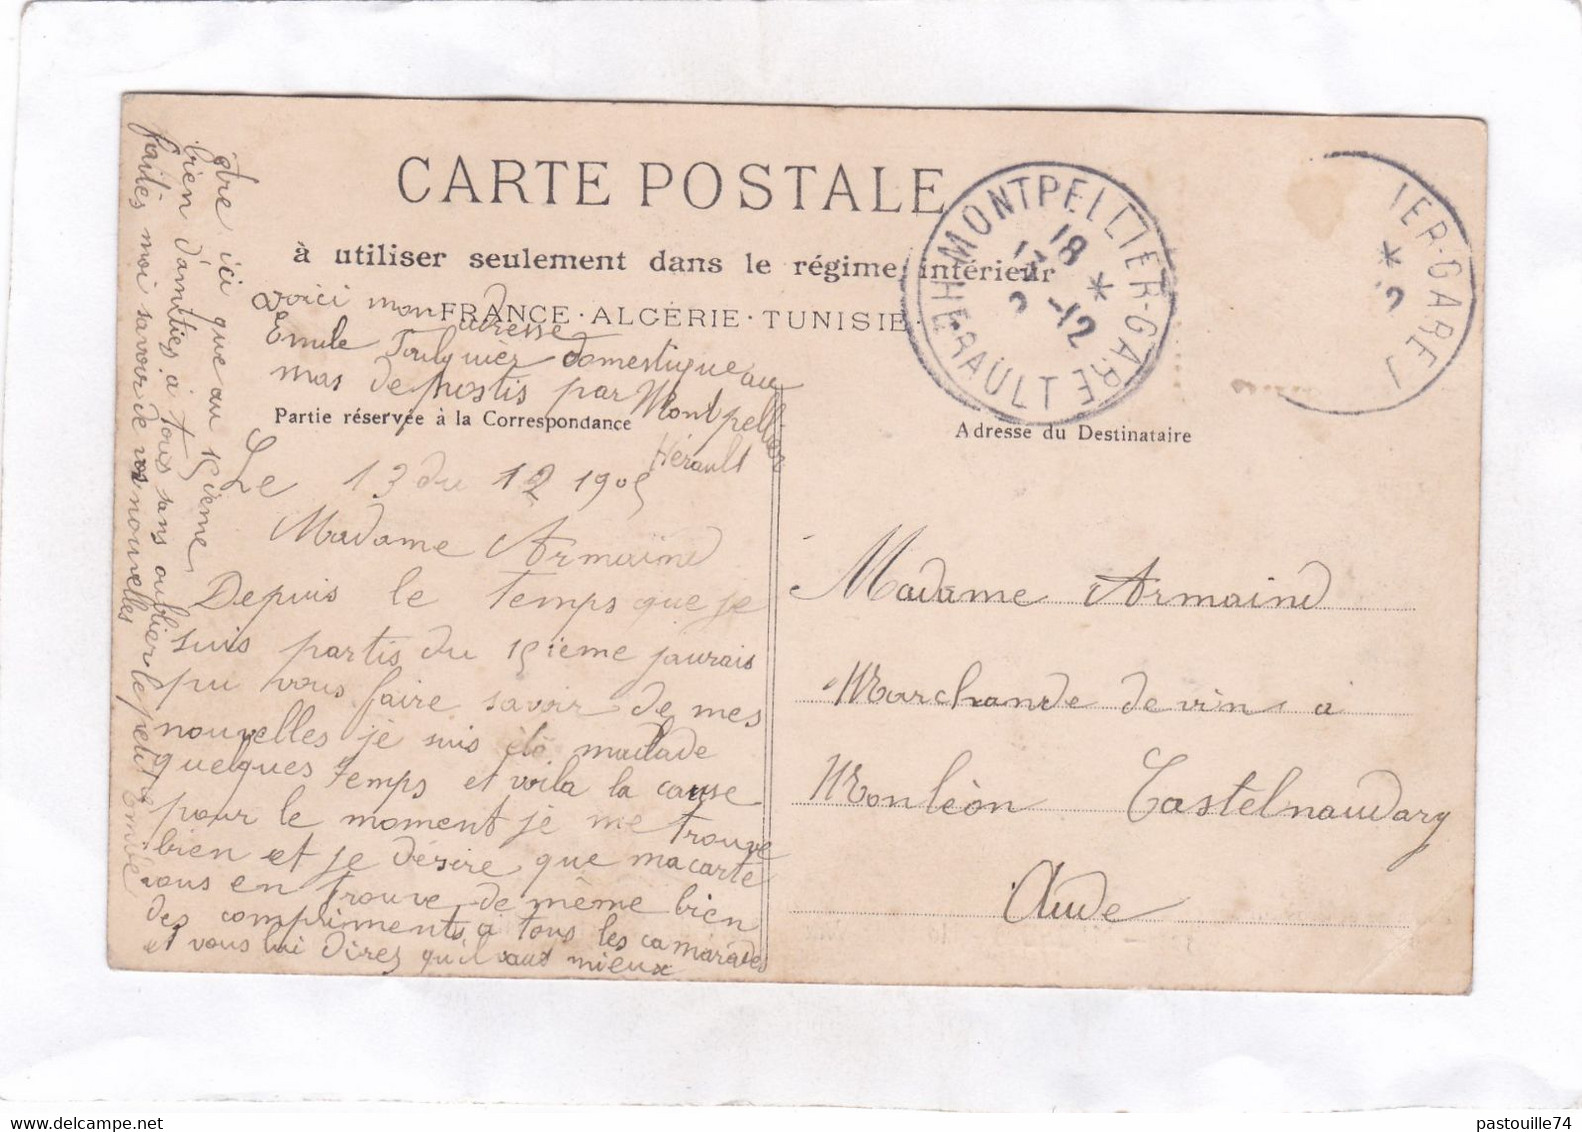 CARTE POSTALE
à utiliser seulement dans le régime intérieur
FRANCE · ALGÉRIE · TUNISIE
Partie réservée à la Correspondance
Adresse du Destinataire
MONTPELLIER-GARE
HÉRAULT
18
12
IER-GARE
voici mon adresse
Emile domestique au
mas de par Montpellier
Hérault
Le 13 du 12 1905
Madame Armaind
Depuis le temps que je
suis partis du 15ième jaurais
pu vous faire savoir de mes
nouvelles je suis été malade
quelques temps et voila la cause
pour le moment je me trouve
bien et je désire que ma carte
vous en trouve de même bien
des compliments a tous les camarades
et vous lui direz qu'il vaut mieux
être ici que au 15ieme
bien d'amitiés à tous sans oublier le petit
faites moi savoir de vos nouvelles
Madame Armaind
Marchande de vins a
Monlèon Castelnaudary
Aude
pastouille74